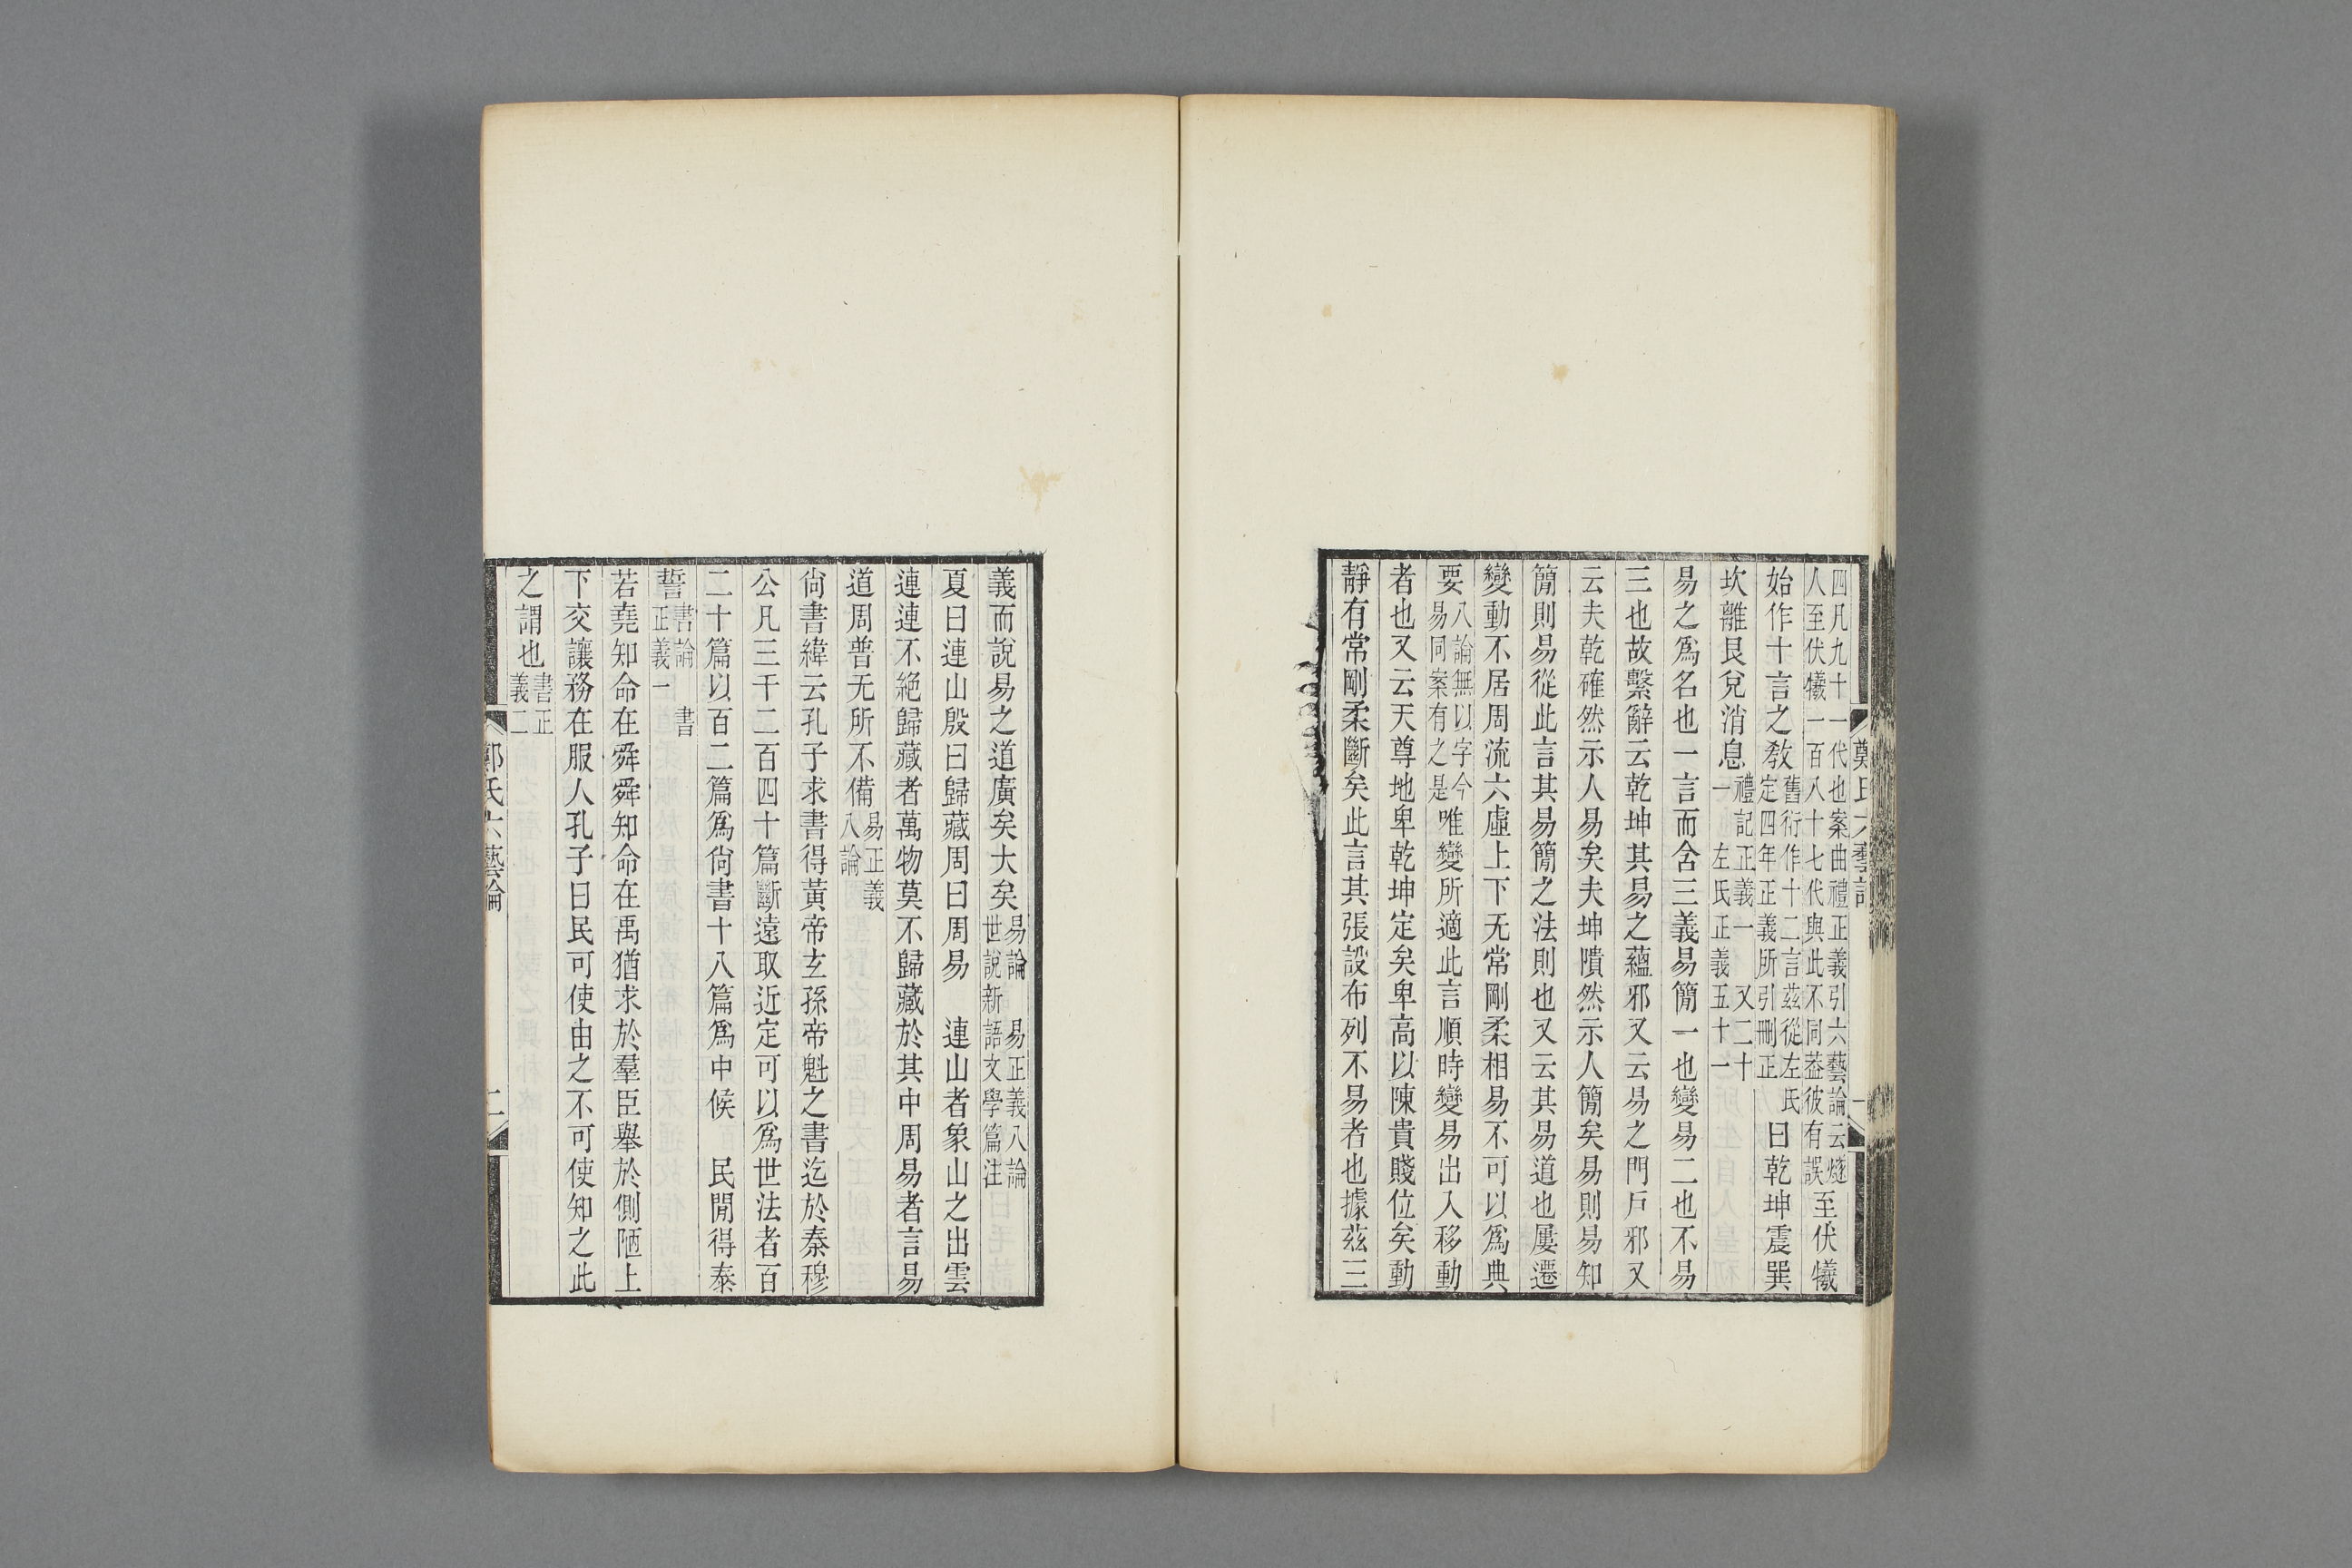 四凡九十一代也案曲禮正義引六藝論云燧
人至伏犧一百八十七代與此不同葢彼有誤
至伏犧
始作十言之敎
舊衍作十二言茲從左氏
定四年正義所引刪正
曰乾坤震巽
坎離艮兌消息
禮記正義一 又二十
一 左氏正義五十一
易之爲名也一言而含三義易簡一也變易二也不易
三也故繫辭云乾坤其易之蘊邪又云易之門戶邪又
云夫乾確然示人易矣夫坤隤然示人簡矣易則易知
簡則易從此言其易簡之法則也又云其易道也屢遷
變動不居周流六虛上下无常剛柔相易不可以爲典
要
八論無以字今
易同案有之是
唯變所適此言順時變易出入移動
者也又云天尊地卑乾坤定矣卑高以陳貴賤位矣動
靜有常剛柔斷矣此言其張設布列不易者也據茲三
鄭氏六藝論 一
義而說易之道廣矣大矣
易論 易正義八論
世說新語文學篇注
夏曰連山殷曰歸藏周曰周易 連山者象山之出雲
連連不絕歸藏者萬物莫不歸藏於其中周易者言易
道周普无所不備
易正義
八論
尙書緯云孔子求書得黃帝玄孫帝魁之書迄於秦穆
公凡三千二百四十篇斷遠取近定可以爲世法者百
二十篇以百二篇爲尙書十八篇爲中候 民閒得泰
誓
書論 書
正義一
若堯知命在舜舜知命在禹猶求於羣臣舉於側陋上
下交讓務在服人孔子曰民可使由之不可使知之此
之謂也
書正
義二
鄭氏六藝論 二